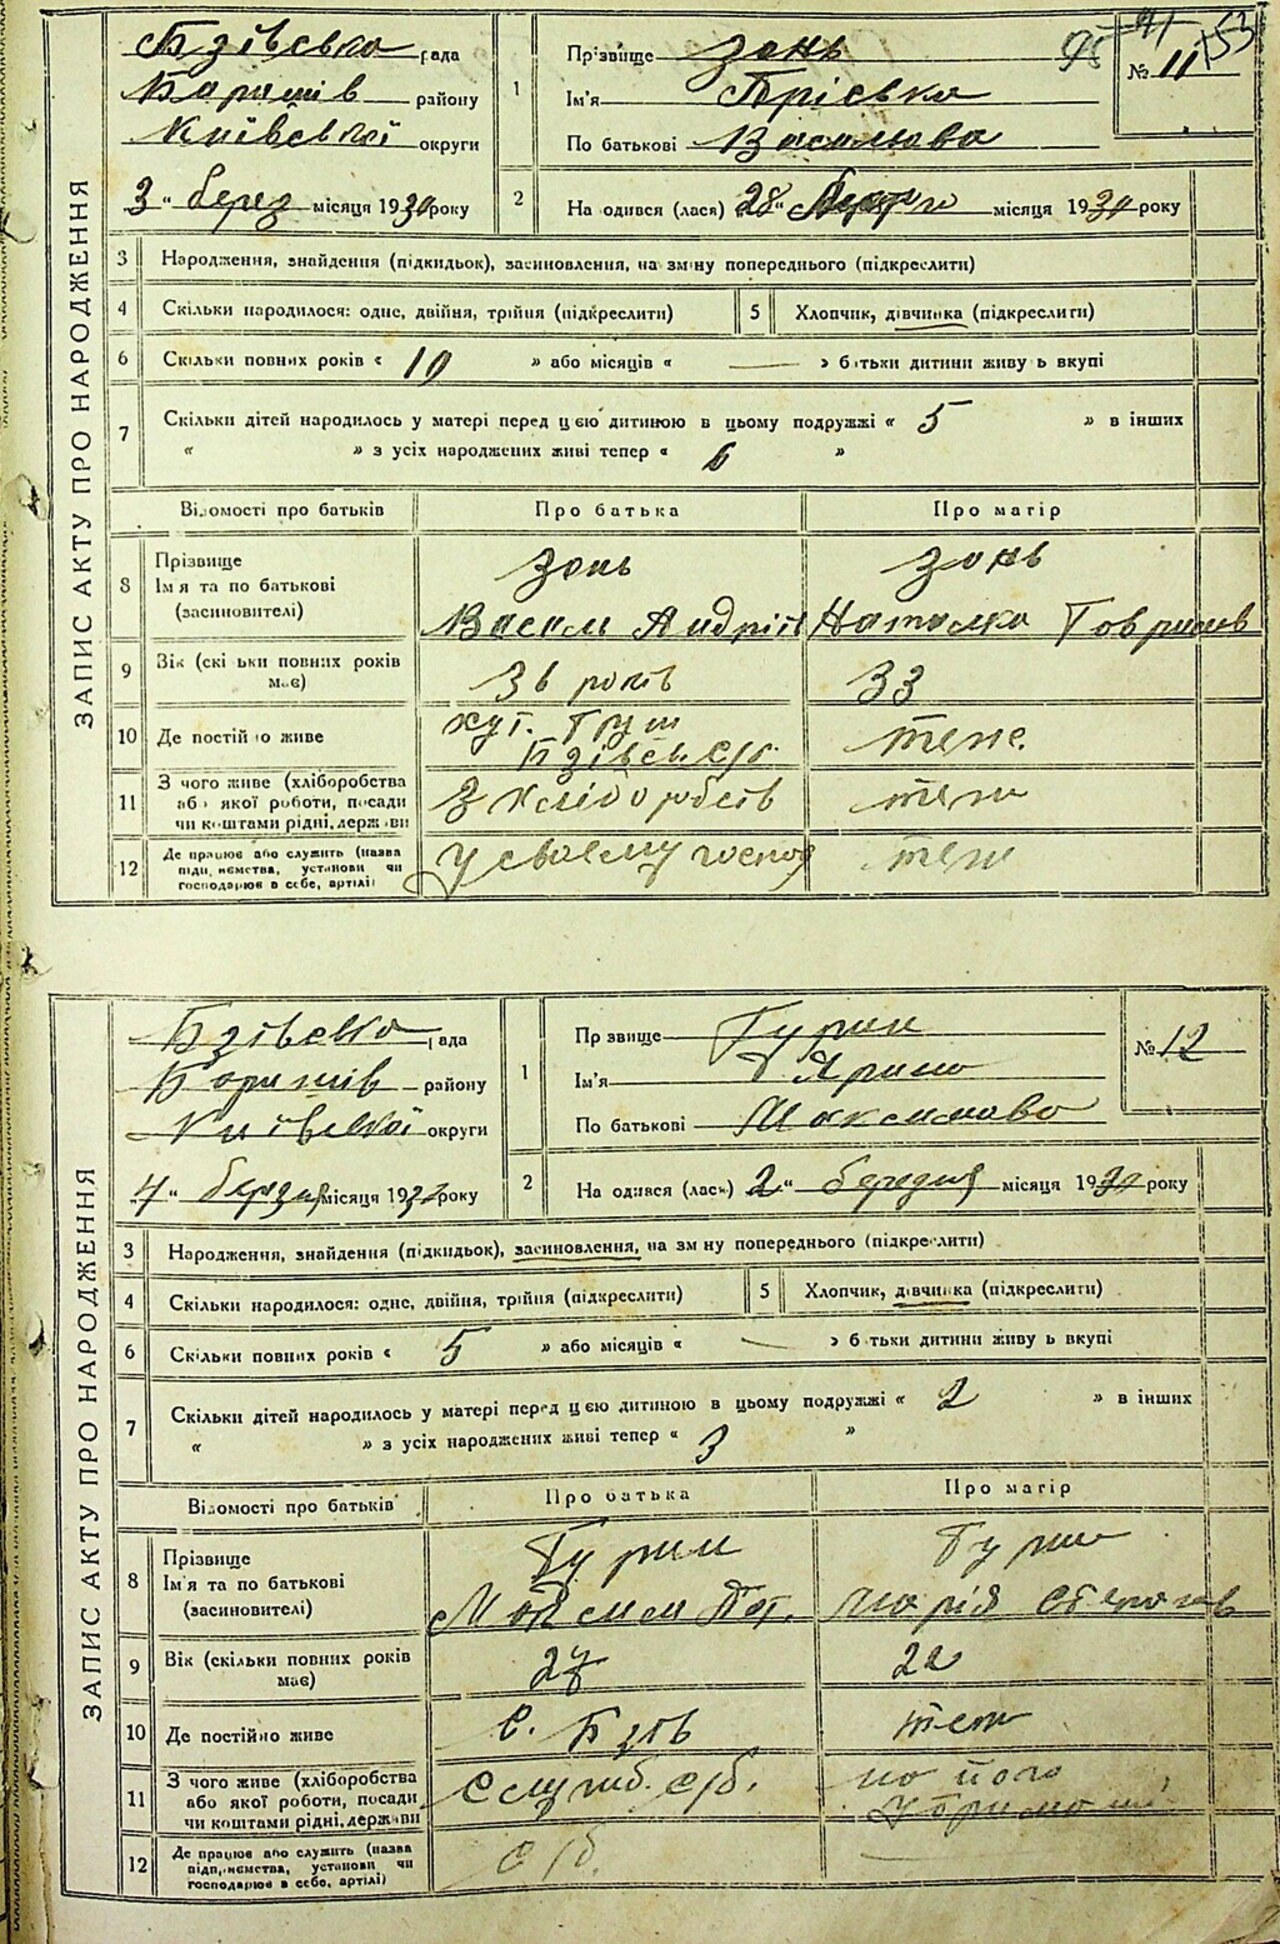 ЗАПИС АКТУ ПРО НАРОДЖЕННЯ
Бзівська рада
Баришів району
Київської округи
3 " берез місяця 1930 року
1 Прізвище Зонь
Ім'я Пріська
По батькові Васильова
95 41 153
№ 11
2 На одився (лася) 28 " місяця 1930 року
3 Народження, знайдення (підкидьок), засиновлення, на зміну попереднього (підкреслити)
4 Скільки народилося: одне, двійня, трійня (підкреслити)
5 Хлопчик, дівчинка (підкреслити)
6 Скільки повних років « 10 » або місяців « — » батьки дитини живу ь вкупі
7 Скільки дітей народилось у матері перед цією дитиною в цьому подружжі « 5 » в інших
« » з усіх народжених живі тепер « 6 »
Відомості про батьків Про батька Про матір
8 Прізвище Зонь Зонь
Ім'я та по батькові
(засиновителі) Василь Андрій Наталка Говрилів
9 Вік (скі ьки повних років має) 36 років 33
10 Де постійно живе хут. Груш Бзівськ. с/р. теж
11 З чого живе (хліборобства
або якої роботи, посади
чи коштами рідні, держави З хліборобств теж
12 Де працює або служить (назва
підприємства, установи чи
господарює в себе, артілі) У своєму господ теж
ЗАПИС АКТУ ПРО НАРОДЖЕННЯ
Бзівська рада
Баришів району
Київської округи
4 " березня місяця 1930 року
1 Пр звище Гурин
Ім'я Ярина
По батькові Максимова
№ 12
2 На одився (лася) 2 " березня місяця 1930 року
3 Народження, знайдення (підкидьок), засиновлення, на зміну попереднього (підкреслити)
4 Скільки народилося: одне, двійня, трійня (підкреслити)
5 Хлопчик, дівчинка (підкреслити)
6 Скільки повних років « 5 » або місяців « — » батьки дитини живу ь вкупі
7 Скільки дітей народилось у матері перед цією дитиною в цьому подружжі « 2 » в інших
« » з усіх народжених живі тепер « 3 »
Відомості про батьків Про батька Про матір
8 Прізвище Гурин Гурин
Ім'я та по батькові
(засиновителі) Максим Марія
9 Вік (скільки повних років має) 27 22
10 Де постійно живе с. Бзів теж
11 З чого живе (хліборобства
або якої роботи, посади
чи коштами рідні, держави Служб. на його
12 Де працює або служить (назва
підприємства, установи чи
господарює в себе, артілі)